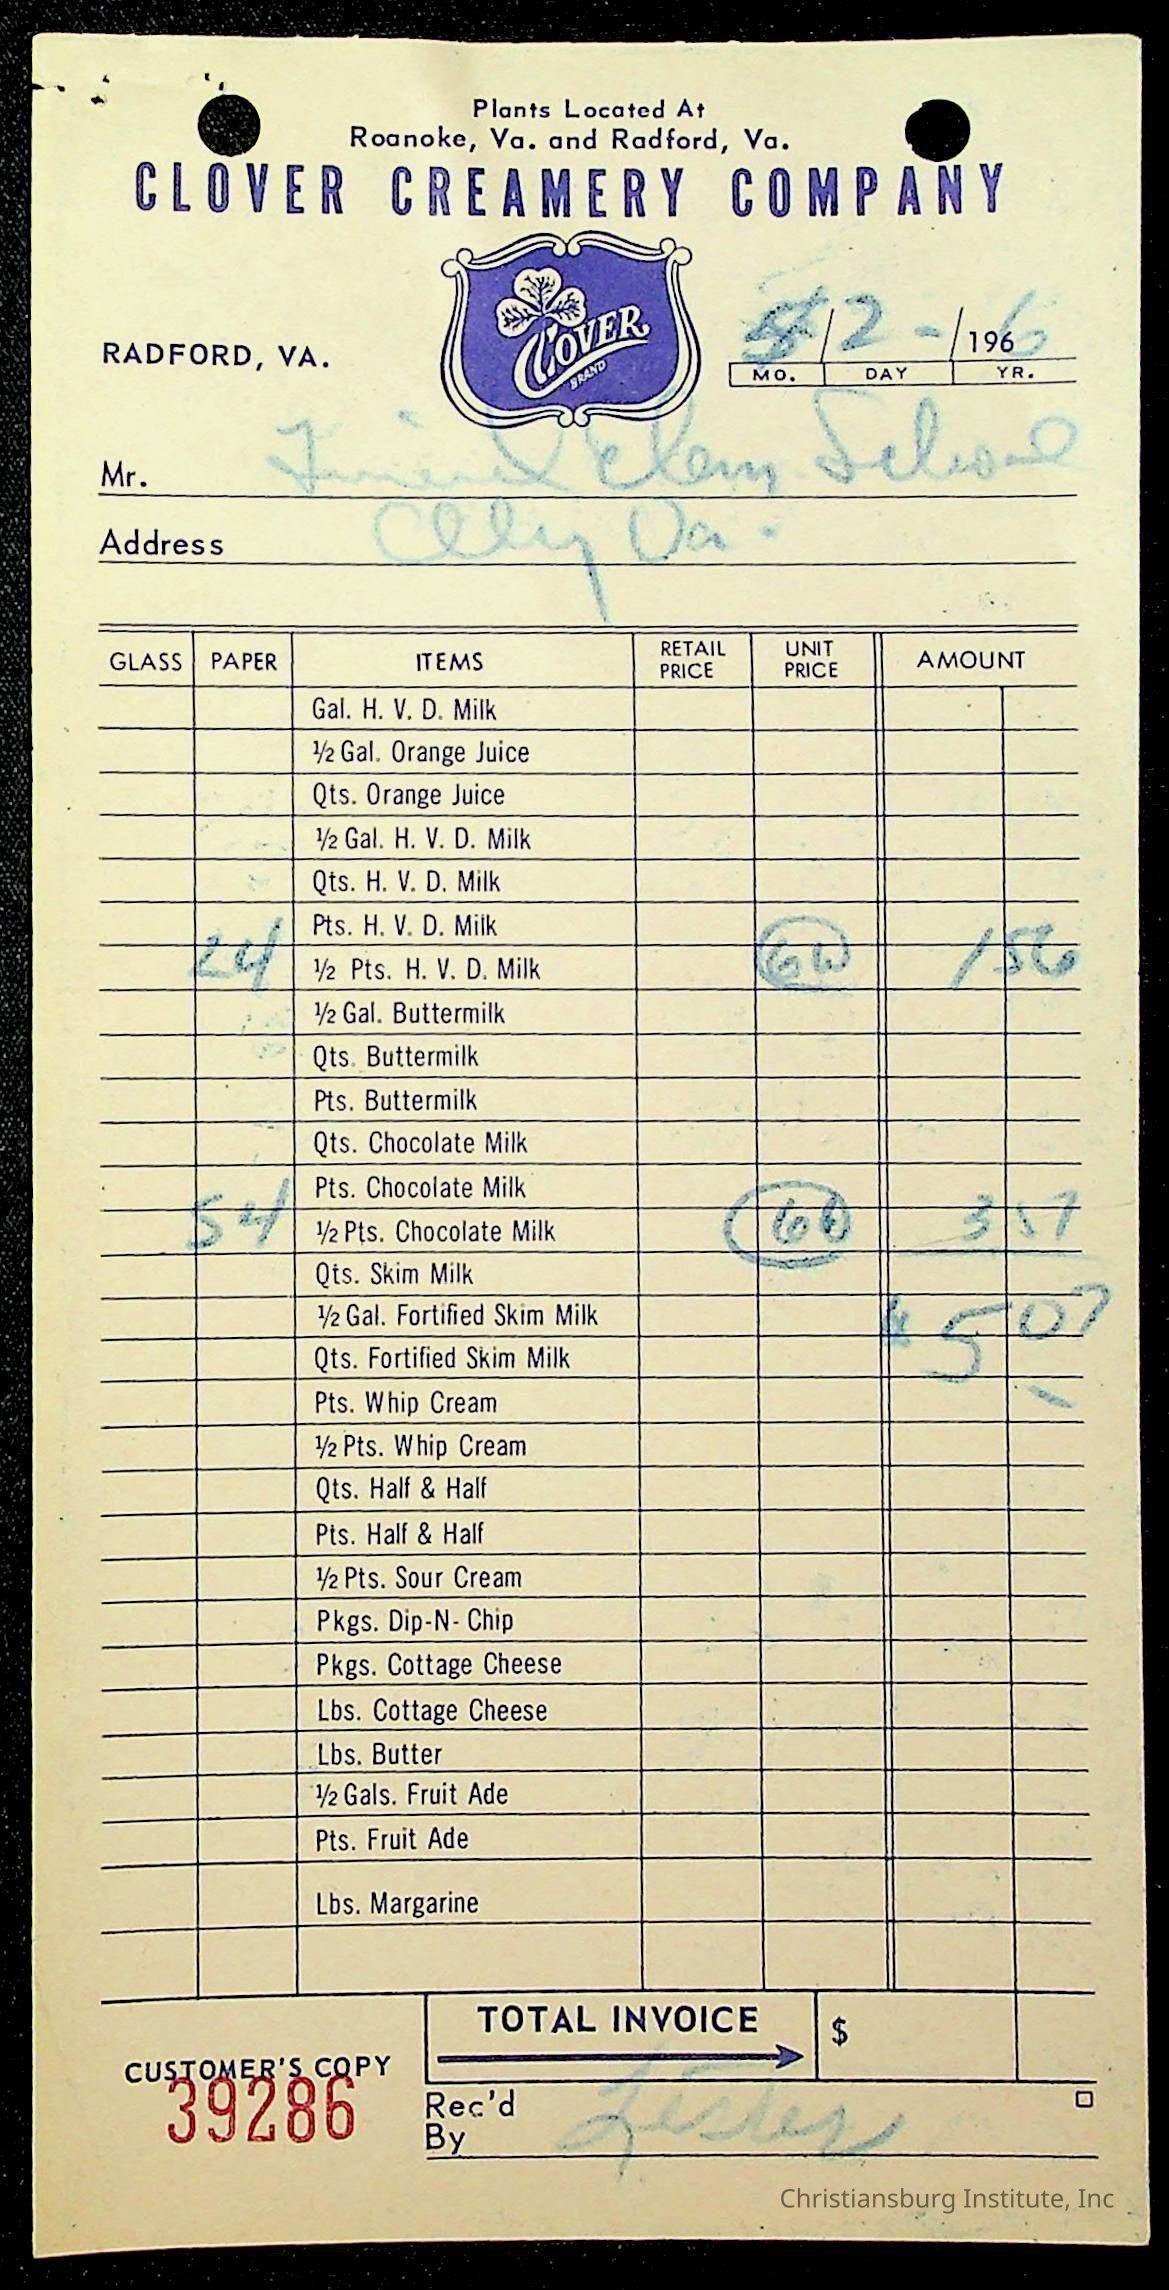 Plants Located At
Roanoke, Va. and Radford, Va.
CLOVER CREAMERY COMPANY
CLOVER
BRAND
RADFORD, VA.
/2-/1966
MO. DAY YR.
Mr. Elem School
Address Va.
GLASS PAPER ITEMS RETAIL PRICE UNIT PRICE AMOUNT
Gal. H. V. D. Milk
½ Gal. Orange Juice
Qts. Orange Juice
½ Gal. H. V. D. Milk
Qts. H. V. D. Milk
Pts. H. V. D. Milk
24 ½ Pts. H. V. D. Milk 156
½ Gal. Buttermilk
Qts. Buttermilk
Pts. Buttermilk
Qts. Chocolate Milk
Pts. Chocolate Milk
54 ½ Pts. Chocolate Milk 3 51
Qts. Skim Milk
½ Gal. Fortified Skim Milk 5 07
Qts. Fortified Skim Milk
Pts. Whip Cream
½ Pts. Whip Cream
Qts. Half & Half
Pts. Half & Half
½ Pts. Sour Cream
Pkgs. Dip-N-Chip
Pkgs. Cottage Cheese
Lbs. Cottage Cheese
Lbs. Butter
½ Gals. Fruit Ade
Pts. Fruit Ade
Lbs. Margarine
TOTAL INVOICE $
CUSTOMER'S COPY
39286
Rec'd By Lester
Christiansburg Institute, Inc